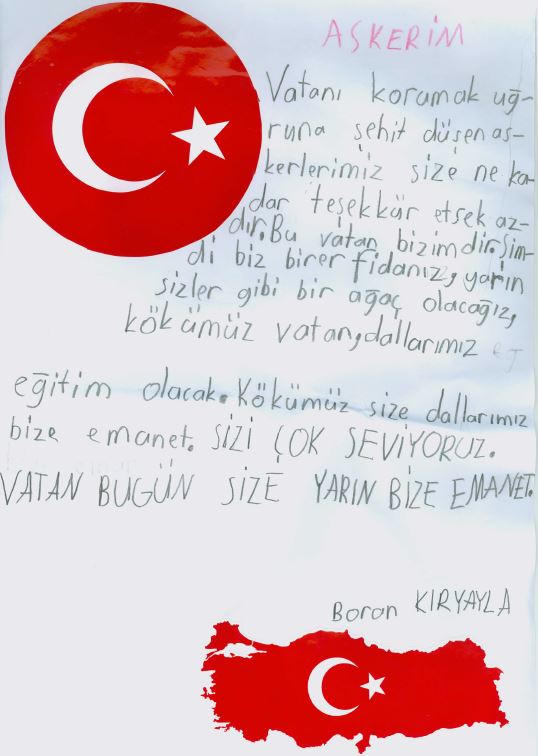 ASKERİM
Vatanı korumak uğ-
runa şehit düşen as-
kerlerimiz size ne ka-
dar teşekkür etsek az-
dır. Bu vatan bizimdir. Şim-
di biz birer fidanız, yarın
sizler gibi bir ağaç olacağız,
kökümüz vatan, dallarımız
eğitim olacak. Kökümüz size dallarımız
bize emanet. SİZİ ÇOK SEVİYORUZ.
VATAN BUGÜN SİZE YARIN BİZE EMANET.
Boran KIRYAYLA